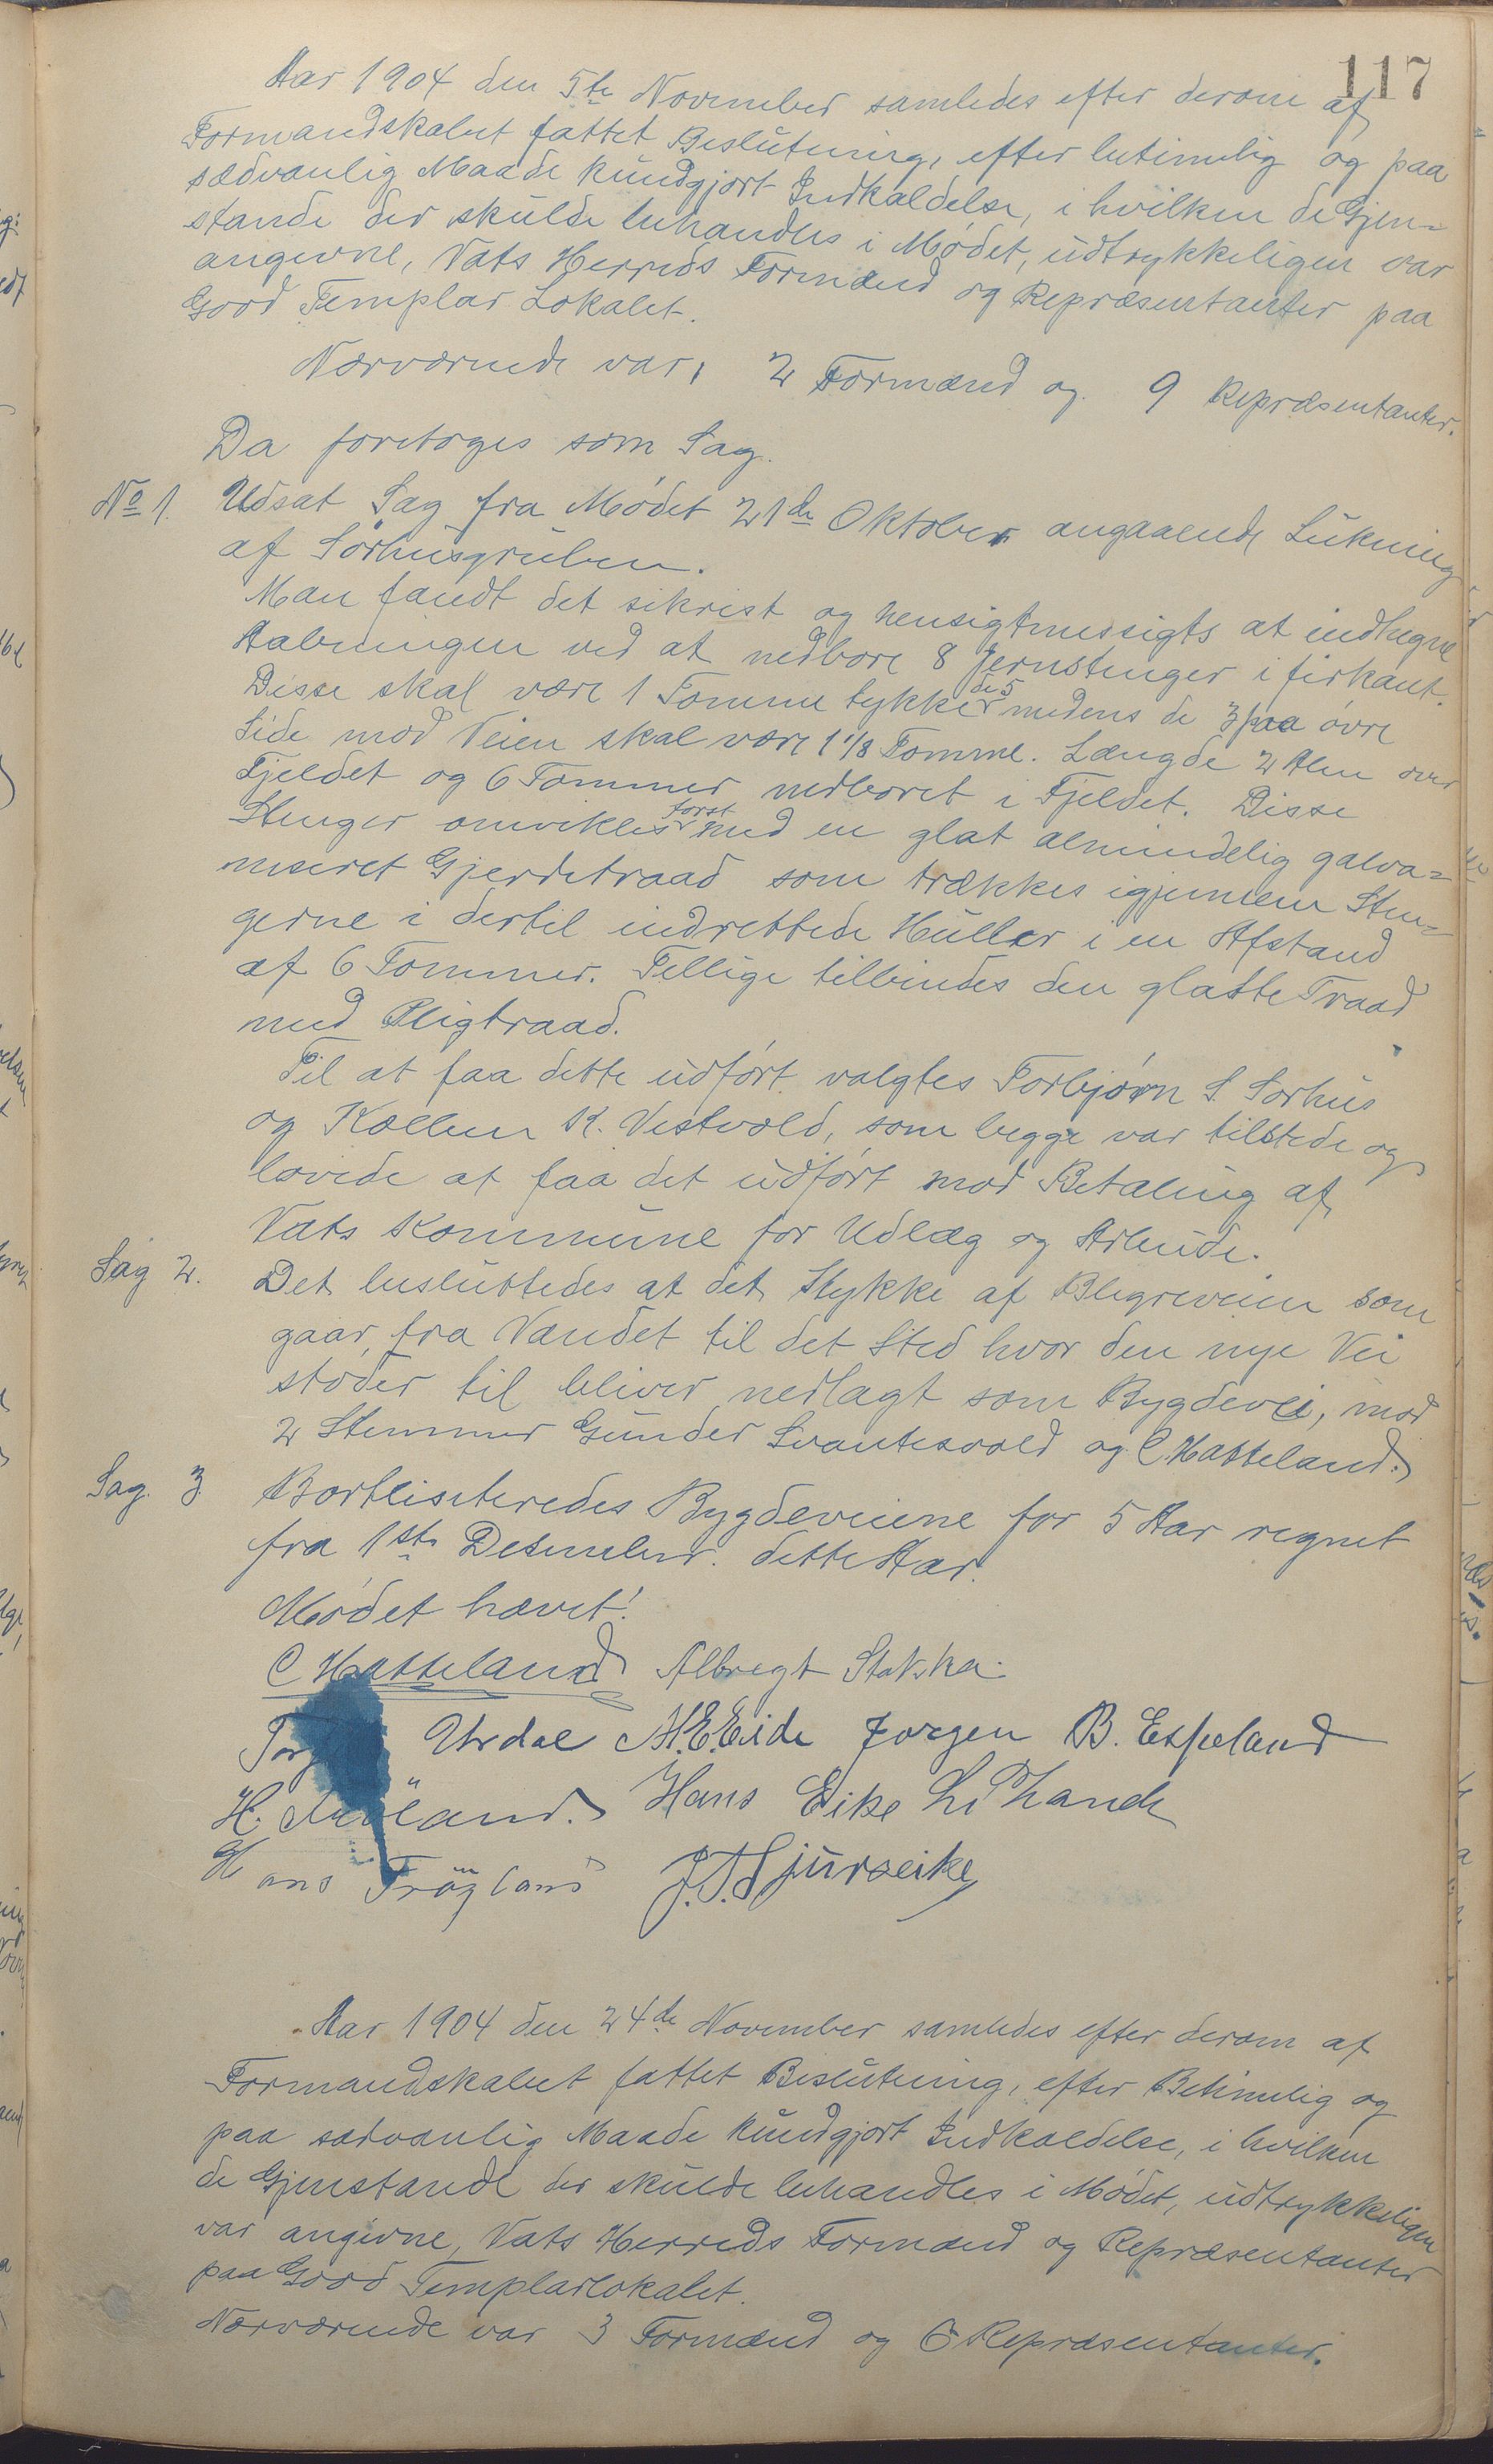 117
Aar 1904 den 5te November samledes efter derom af
Formandskabet fattet Beslutning, efter betimelig og paa
sædvanlig Maade kundgjort Indkaldelse, i hvilken de Gjen=
stande der skulde behandles i Mødet, udtrykkeligen var
angivne, Vats Herreds Formænd og Repræsentanter paa
Good Templar Lokalet.
Nærværende var, 2 Formænd og 9 Repræsentanter.
Da foretoges som Sag.
No 1. Udsat Sag fra Mødet 21de Oktober angaaende Lukning
af Sørhusgruben.
Man fandt det sikrest og hensigtmessigts at indhegne
Aabningen ved at nedbore 8 Jernstenger i firkant.
Disse skal være 1 Tomme tykke de 5 medens de 3 paa øvre
Side mod Veien skal være 1 1/8 Tomme. Længde 2 Alen over
Fjeldet og 6 Tommer nedboret i Fjeldet. Disse
Stenger omvikles først med en glat almindelig galva=
niseret Gjerdetraad som trækkes igjennem Sten=
gerne i dertil indrettede Huller i en Afstand
af 6 Tommer. Tillige tilbindes den glatte Traad
med Pligtraad.
Til at faa dette udført valgtes Torbjørn S. Sørhus
og Kollein K. Vestvold, som begge var tilstede og
lovede at faa det udført mod Betaling af
Vats Kommune for Udlæg og Arbeide.
Sag 2. Det besluttedes at det Stykke af Blegreveien som
gaar, fra Vandet til det Sted hvor den nye Vei
støder til bliver nedlagt som Bygdevei, mod
2 Stemmer Gunder Svantesvold og C. Hatteland.
Sag. 3 Bortlisiteredes Bygdeveiene for 5 Aar regnet
fra 1ste Desember. dette Aar.
Mødet hævet!
C Hatteland Albregt Stakka.
Urdal A.E.Eide Jorgen B. Espeland
H. Hans Eike
Hans Frøgland J.T.Sjurseike
Aar 1904 den 24de November samledes efter derom af
Formandskabet fattet Beslutning, efter Betimelig og
paa sædvanlig Maade kundgjort Indkaldelse, i hvilken
de Gjenstande der skulde behandles i Mødet, udtrykkeligen
var angivne, Vats Herreds Formænd og Repræsentanter
paa Good Templarlokalet.
Nærværende var 3 Formænd og 6 Repræsentanter.